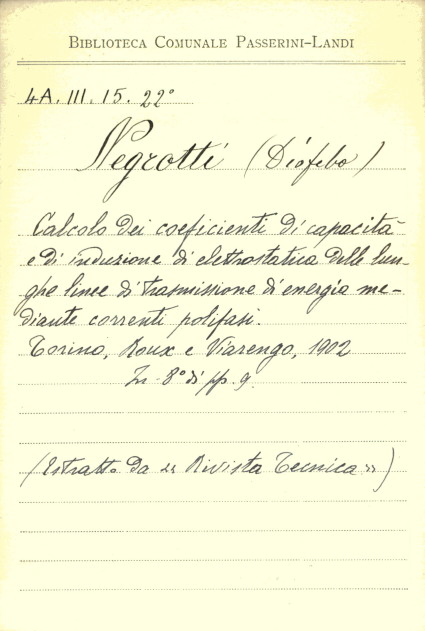 BIBLIOTECA COMUNALE PASSERINI-LANDI
4A. III. 15. 22°
Negrotti (Diofebo)
Calcolo dei coeficienti di capacità
e di induzione di elettrostatica delle lun-
ghe linee di trasmissione di energia me-
diante correnti polifasi.
Torino, Roux e Viarengo, 1902
In 8° di pp. 9.
(Estratto da "Rivista Tecnica")